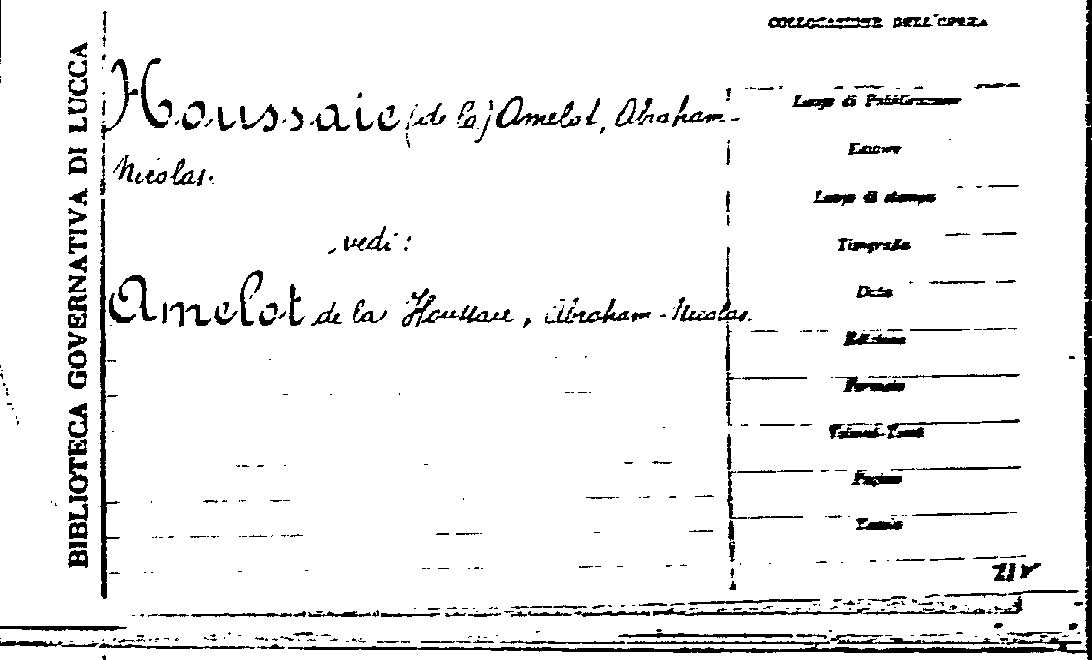 BIBLIOTECA GOVERNATIVA DI LUCCA
COLLOCAZIONE DELL'OPERA
Houssaie (de la) Amelot, Abraham-
Nicolas.
vedi:
Amelot de la Houssaie, Abraham-Nicolas.
Luogo di Pubblicazione
Editore
Luogo di stampa
Tipografia
Data
Edizione
Formato
Volumi-Tomi
Pagine